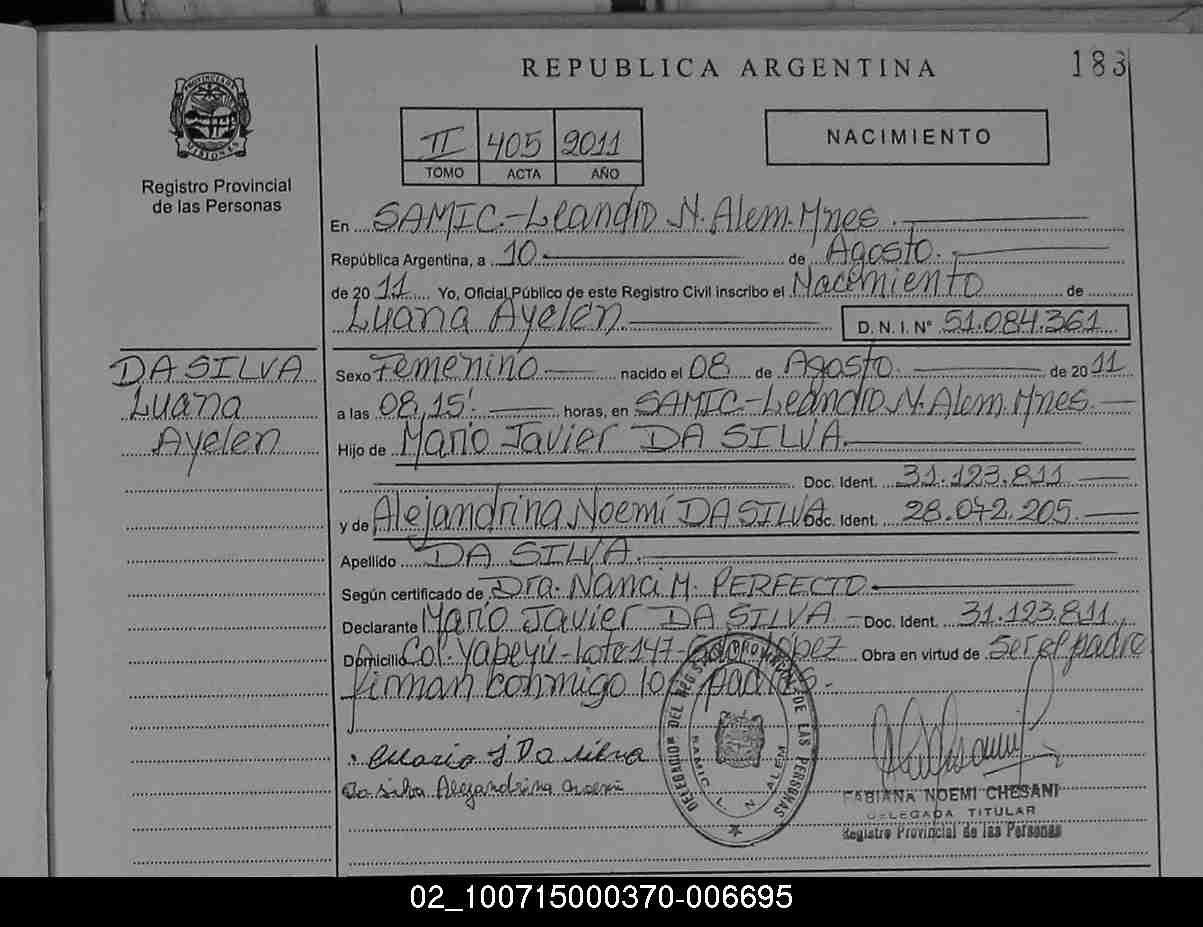 REPUBLICA ARGENTINA
183
PROVINCIA DE MISIONES
Registro Provincial
de las Personas
II 405 2011
TOMO ACTA AÑO
NACIMIENTO
En SAMIC.-Leandro N. Alem. Mnes.
República Argentina, a 10 de Agosto.
de 2011 Yo, Oficial Público de este Registro Civil inscribo el Nacimiento de
Luana Ayelen. D.N.I. N° 51.084.361
DA SILVA
Luana
Ayelen
Sexo Femenino nacido el 08 de Agosto. de 2011
a las 08,15'. horas, en SAMIC-Leandro N. Alem. Mnes.
Hijo de Mario Javier DA SILVA.
Doc. Ident. 31.123.811
y de Alejandrina Noemí DA SILVA Doc. Ident. 28.042.205.
Apellido DA SILVA.
Según certificado de Dra. Nanci M. PERFECTO.
Declarante Mario Javier DA SILVA - Doc. Ident. 31.123.811,
Domicilio Col. Yapeyú-Lote 147- López Obra en virtud de Ser el padre
firman conmigo los padres.
Mario J Da silva
Da silva Alejandrina Noemi
DELEGACION DEL REGISTRO PROVINCIAL DE LAS PERSONAS
SAMIC L. N. ALEM
FABIANA NOEMI CHESANI
DELEGADA TITULAR
Registro Provincial de las Personas
02_100715000370-006695